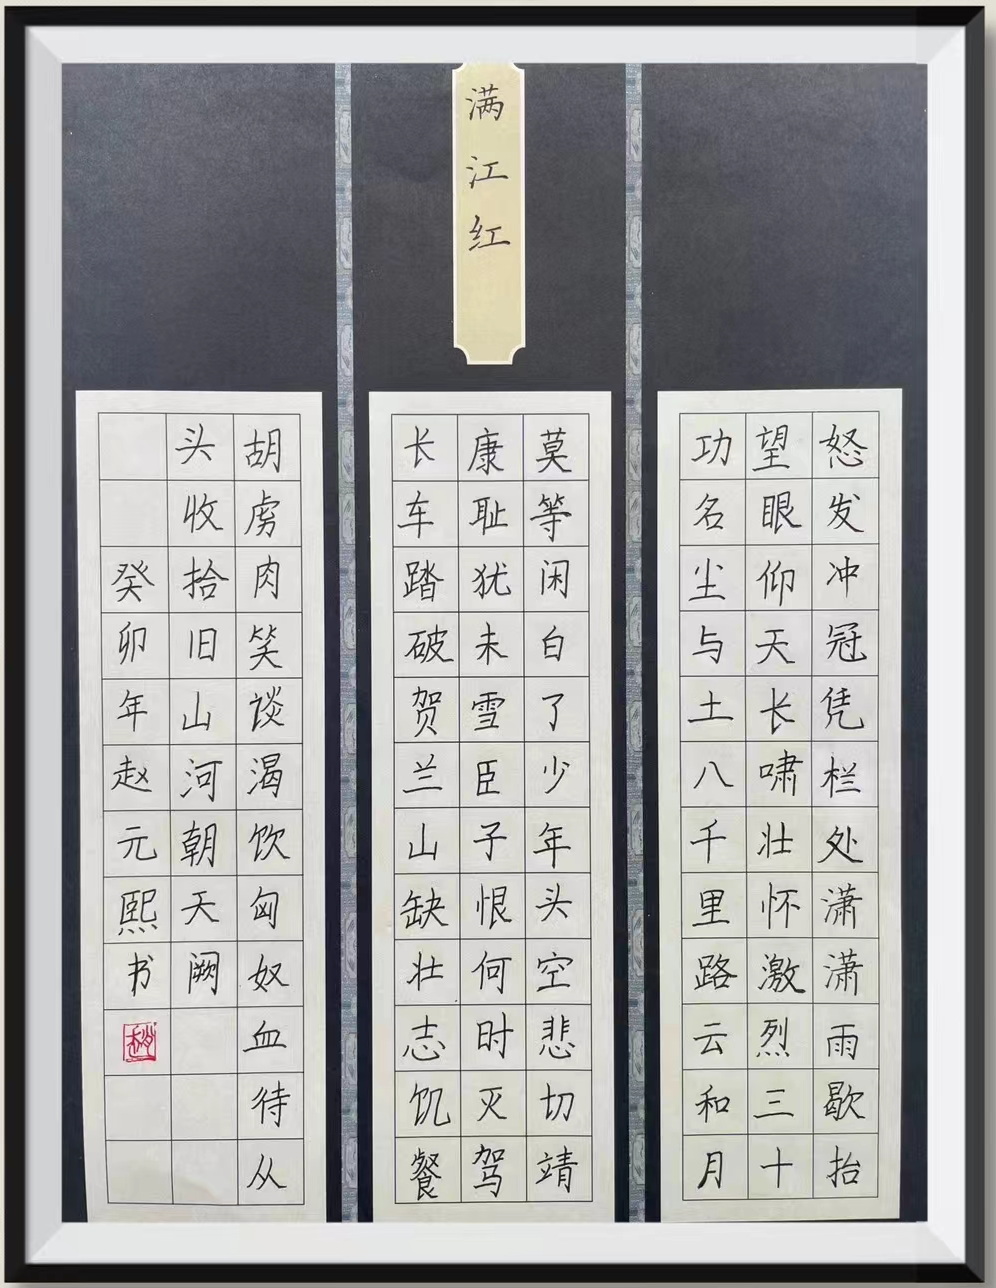 满江红
怒发冲冠凭栏处潇潇雨歇抬
望眼仰天长啸壮怀激烈三十
功名尘与土八千里路云和月
莫等闲白了少年头空悲切靖
康耻犹未雪臣子恨何时灭驾
长车踏破贺兰山缺壮志饥餐
胡虏肉笑谈渴饮匈奴血待从
头收拾旧山河朝天阙
癸卯年赵元熙书
赵